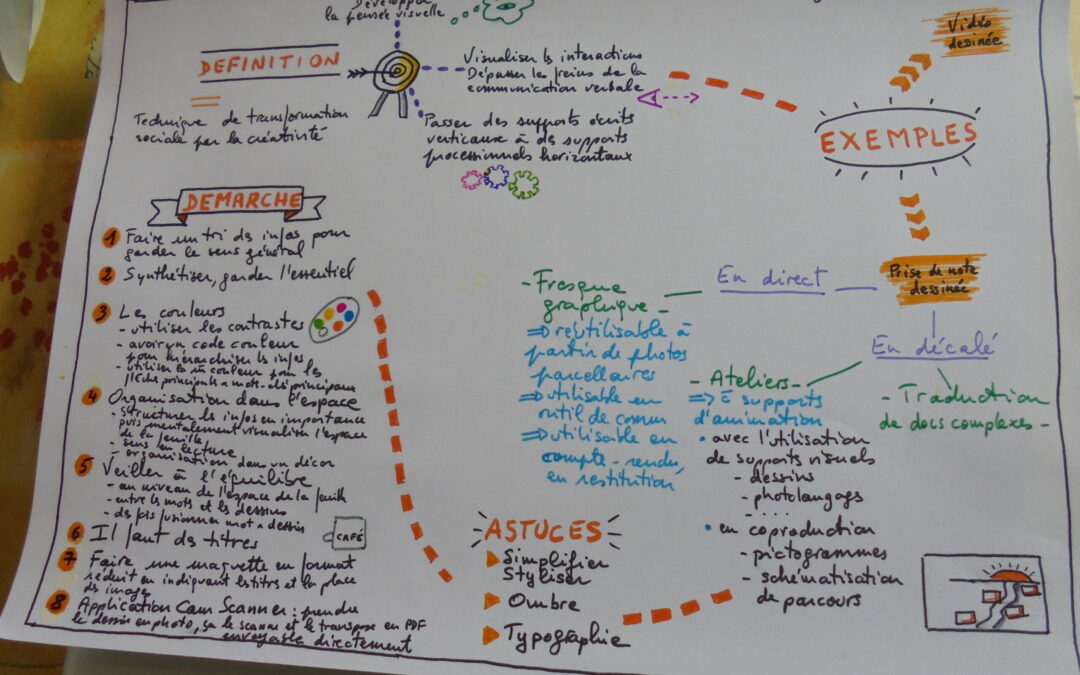 Développer
la pensée visuelle
DEFINITION
Technique de transformation
sociale par la créativité
Visualiser ls interactions
Dépasser les freins de la
communication verbale
Passer des supports écrits
verticaux à des supports
processionnels horizontaux
Vidéo
dessinée
EXEMPLES
Prise de note
dessinée
En direct
- Fresque
graphique -
=> réutilisable à
partir de photos
parcellaires
=> utilisable en
outil de comm
=> utilisable en
compte-rendu,
en restitution
En décalé
- Ateliers -
=> supports
d'animation
• avec l'utilisation
de supports visuels
- dessins
- photolangags
- ....
• en coproduction
- pictogrammes
- schématisation
de parcours
- Traduction
de docs complexes -
DEMARCHE
1 Faire un tri des infos pour
garder le sens général
2 Synthétiser, garder l'essentiel
3 Les couleurs
- utiliser les contrastes
- avoir un code couleur
pour hiérarchiser ls infos
- utiliser la m couleur pour les
flèches principals + mots-clés principaux
4 Organisation dans l'espace
- structurer ls infos en importance
puis mentalement visualiser l'espace
de la feuille
- sens de lecture
- organisation dans un décor
5 Veiller à l'équilibre
- au niveau de l'espace de la feuille
- entre ls mots et ls dessins
- ds fois fusionner mot + dessin
6 Il faut ds titres
CAFÉ
7 Faire une maquette en format
réduit en indiquant les titrs et la place
ds images
8 Application Cam Scanner : prendre
le dessin en photo, ça le scanne et le transpose en PDF
envoyable directement
ASTUCES
Simplifier
Styliser
Ombre
Typographie